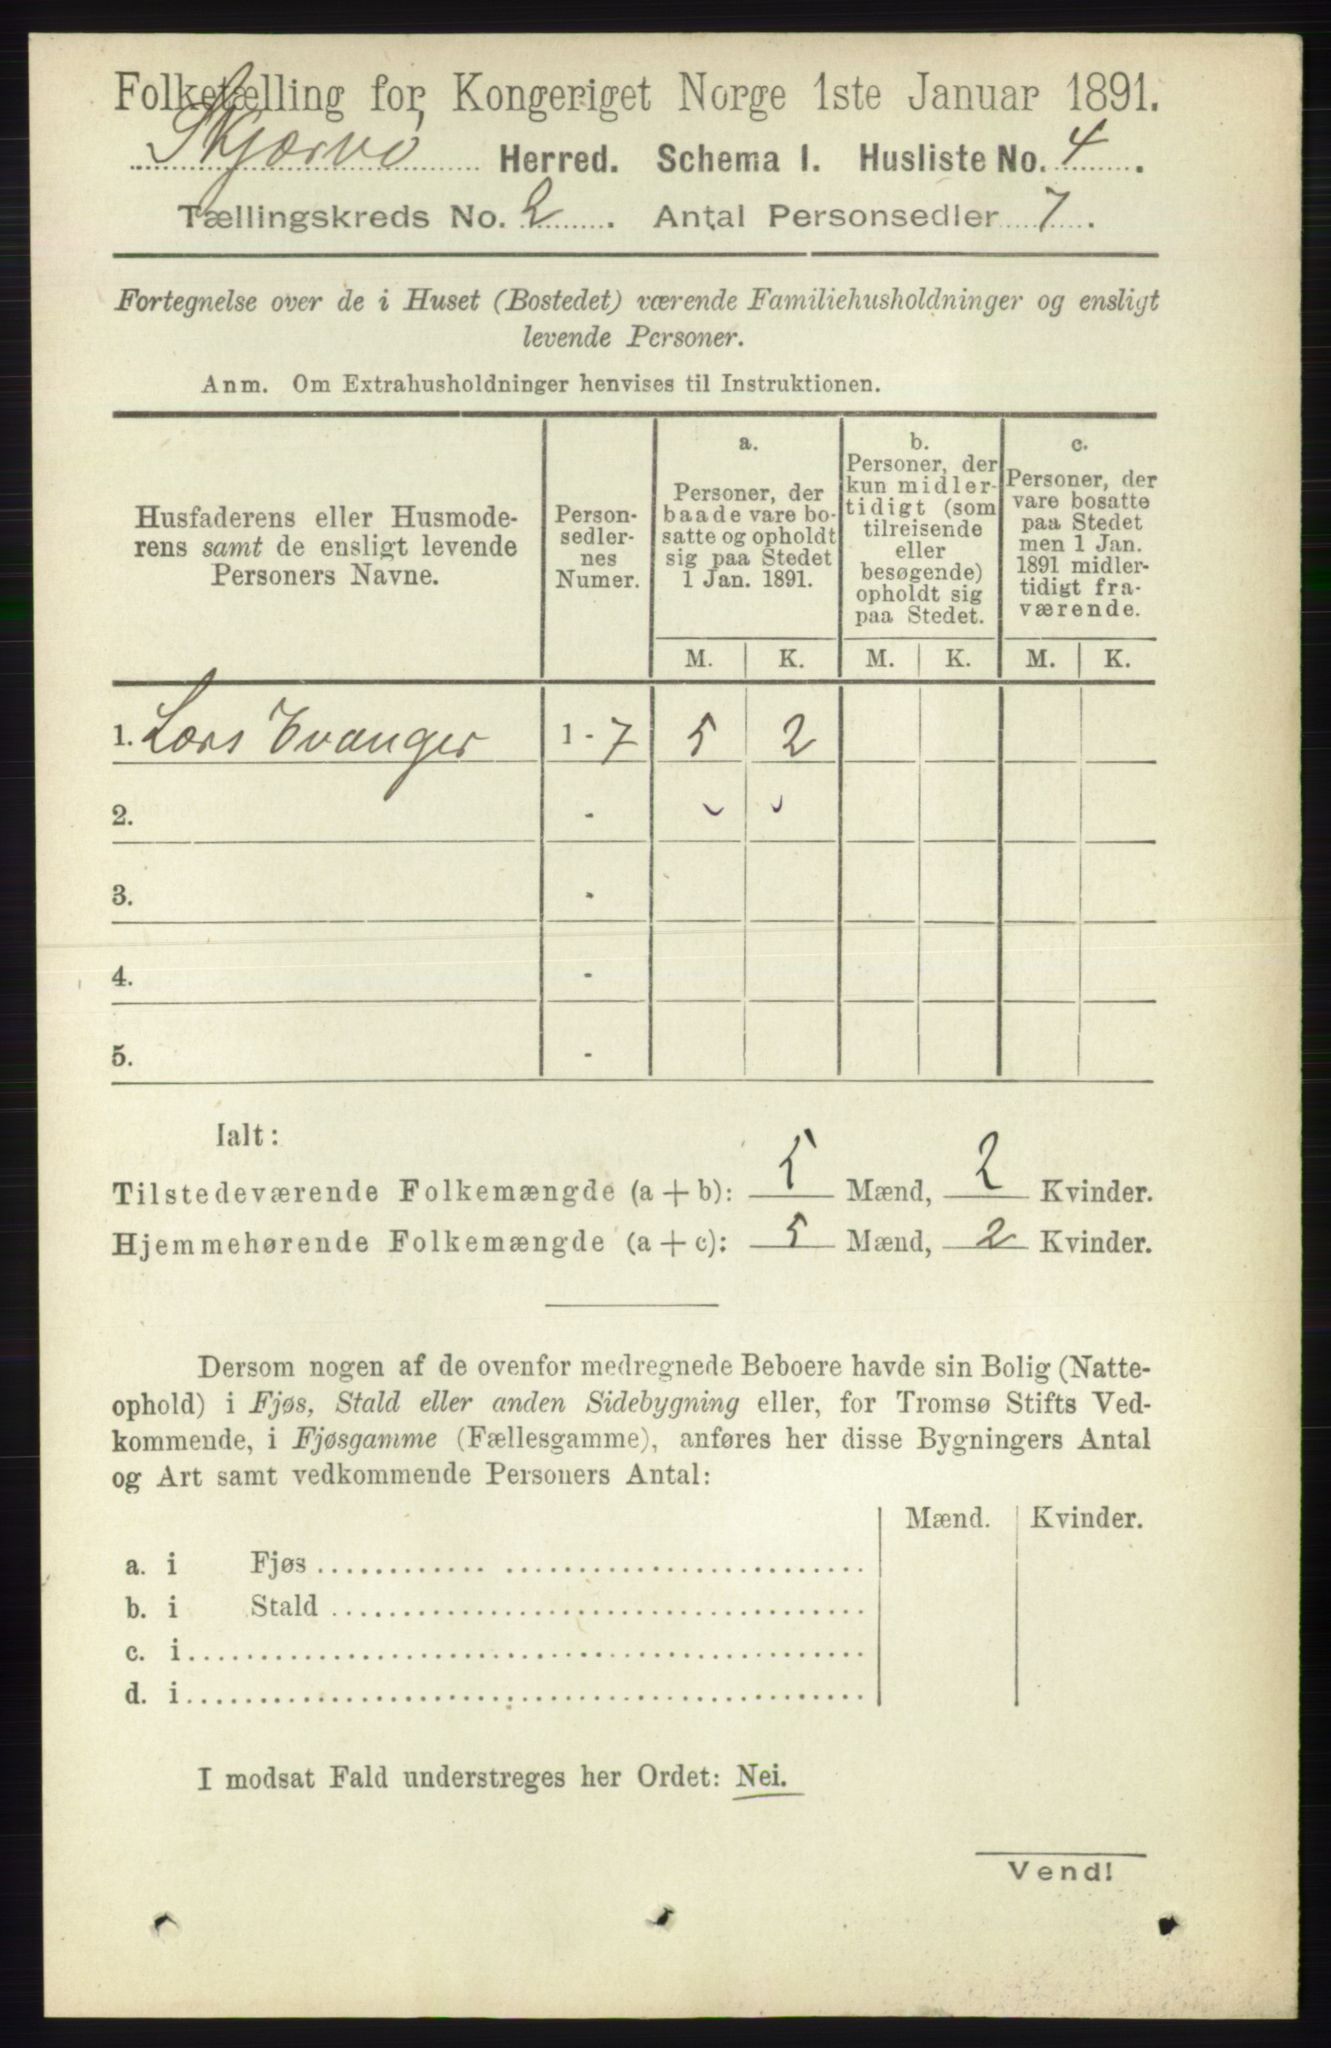 Folketælling for Kongeriget Norge 1ste Januar 1891.
Skjærvø Herred. Schema 1. Husliste No. 4.
Tællingskreds No. 2. Antal Personsedler 7.
Fortegnelse over de i Huset (Bostedet) værende Familiehusholdninger og ensligt
levende Personer.
Anm. Om Extrahusholdninger henvises til Instruktionen.
Husfaderens eller Husmode-
rens samt de ensligt levende
Personers Navne.
Person-
sedler-
nes
Numer.
a.
Personer, der
baade vare bo-
satte og opholdt
sig paa Stedet
1 Jan. 1891.
b.
Personer, der
kun midler-
tidigt (som
tilreisende
eller
besøgende)
opholdt sig
paa Stedet.
c.
Personer, der
vare bosatte
paa Stedet
men 1 Jan.
1891 midler-
tidigt fra-
værende.
M. K. M. K. M. K.
1. Lars Evanger 1 - 7 5 2
2. -
3. -
4. -
5. -
Ialt:
Tilstedeværende Folkemængde (a + b): 5 Mænd, 2 Kvinder.
Hjemmehørende Folkemængde (a + c): 5 Mænd, 2 Kvinder.
Dersom nogen af de ovenfor medregnede Beboere havde sin Bolig (Natte-
ophold) i Fjøs, Stald eller anden Sidebygning eller, for Tromsø Stifts Ved-
kommende, i Fjøsgamme (Fællesgamme), anføres her disse Bygningers Antal
og Art samt vedkommende Personers Antal:
Mænd. Kvinder.
a. i Fjøs
b. i Stald
c. i
d. i
I modsat Fald understreges her Ordet: Nei.
Vend!